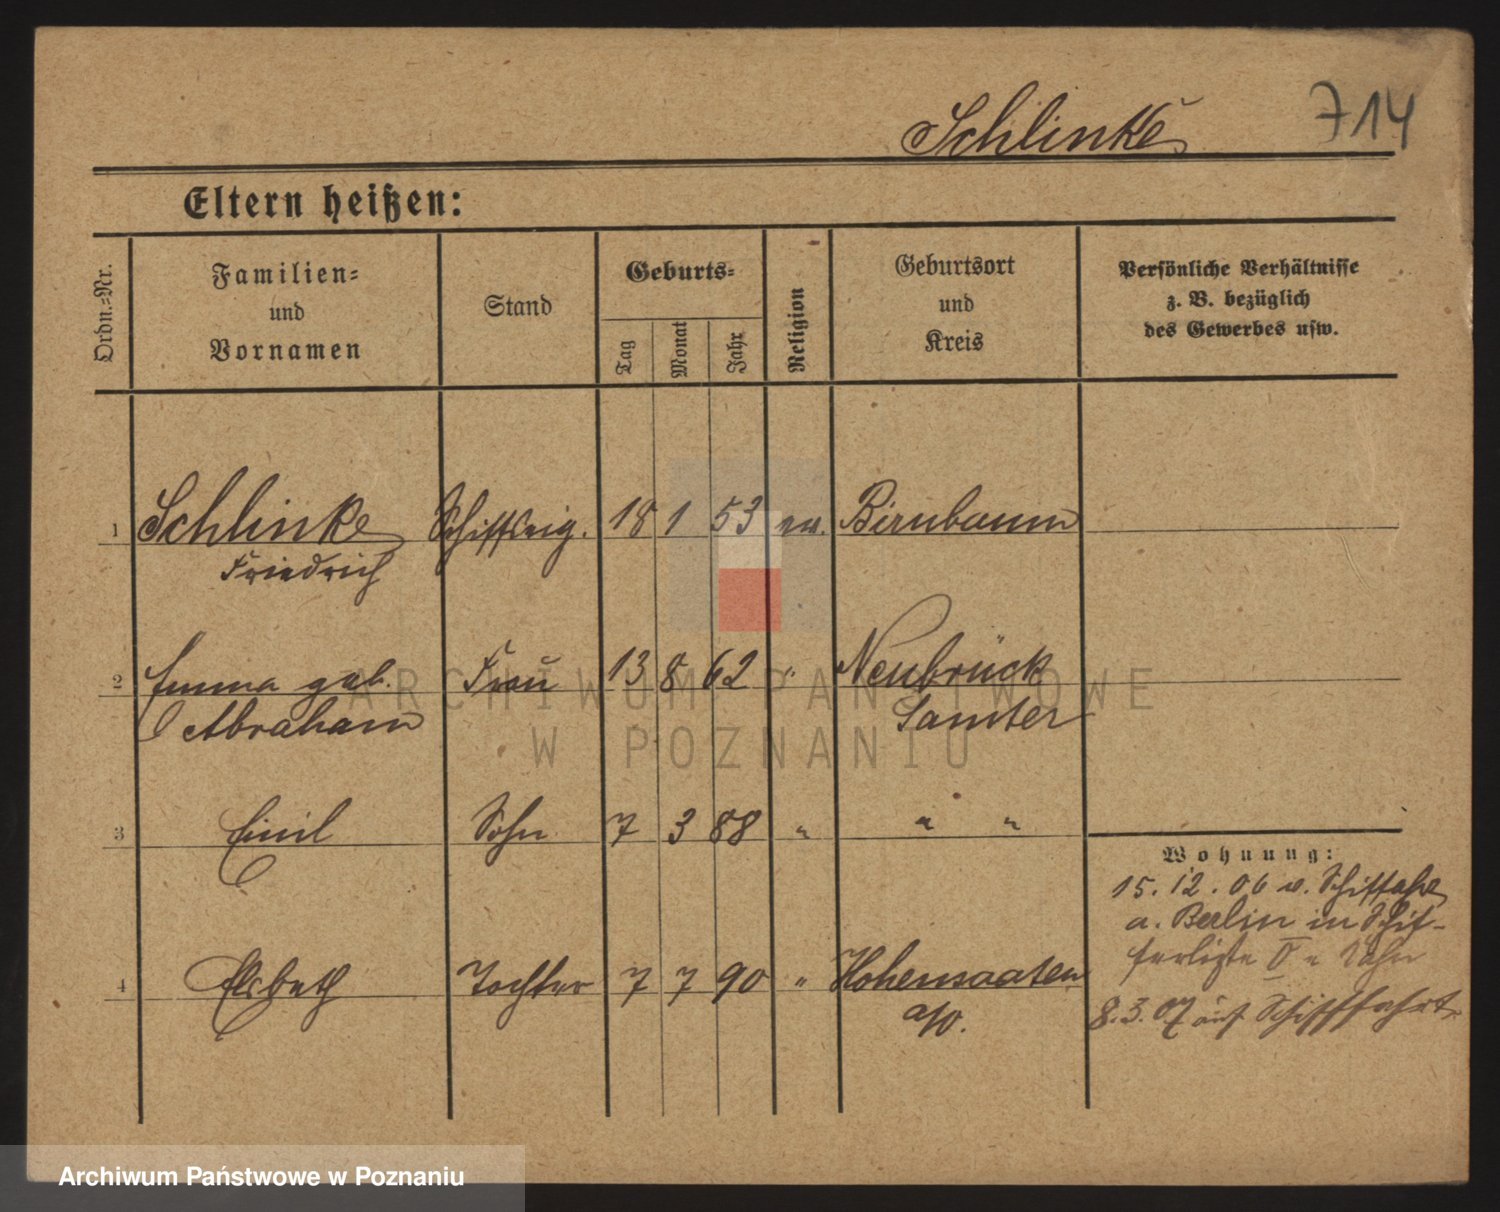 Schlinke
714
Eltern heißen:
Ordn.-Nr.
Familien-
und
Vornamen
Stand
Geburts-
Tag
Monat
Jahr
Religion
Geburtsort
und
Kreis
Persönliche Verhältnisse
z. B. bezüglich
des Gewerbes usw.
1 Schlinke Schiffseig. 18 1 53 ev. Birnbaum
Friedrich
2 Emma geb. Frau 13 8 62 " Neubrück
Abraham Samter
3 Emil Sohn 7 3 88 " " "
Wohnung:
15.12.06 v.
a. Berlin in Schif-
4 Elsbeth Tochter 7 7 90 " Hohensaaten
a/O.
8.3.07 auf Schifffahrt
ARCHIWUM PAŃSTWOWE
W POZNANIU
Archiwum Państwowe w Poznaniu